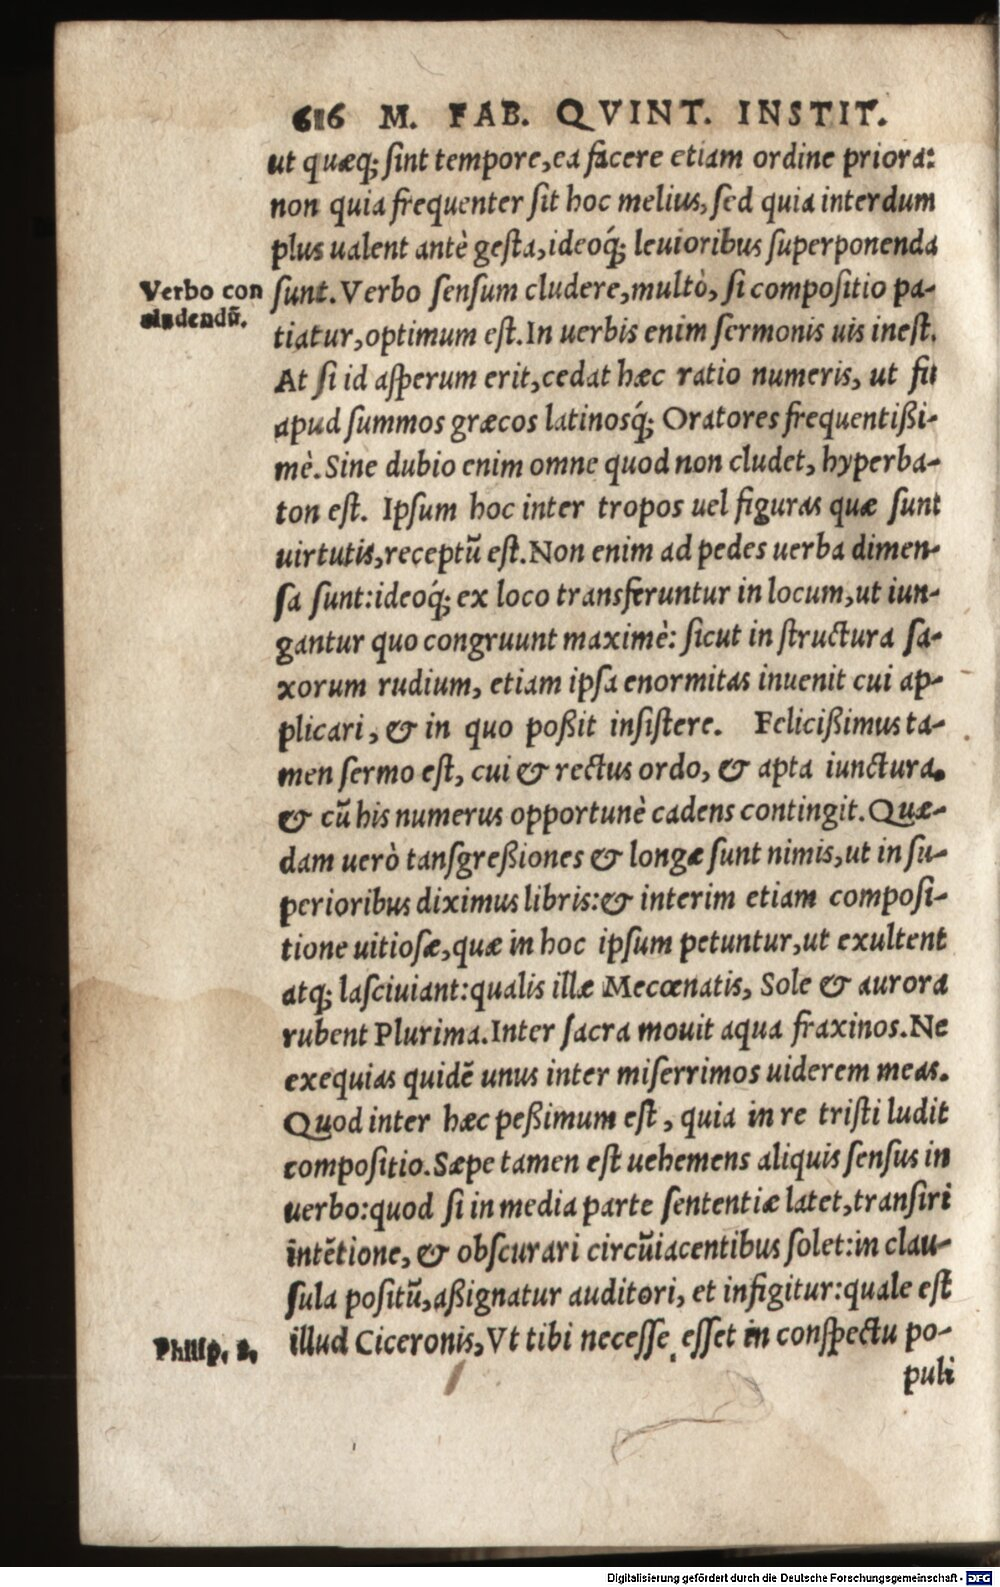 616 M. FAB. QVINT. INSTIT.
ut quæq; ſint tempore, ea facere etiam ordine priora:
non quia frequenter ſit hoc melius, ſed quia interdum
plus ualent antè geſta, ideoq́; leuioribus ſuperponenda
Verbo con
cludendũ.
ſunt. Verbo ſenſum cludere, multò, ſi compoſitio pa-
tiatur, optimum eſt. In uerbis enim ſermonis uis ineſt.
At ſi id aſperum erit, cedat hæc ratio numeris, ut fit
apud ſummos græcos latinosq́; Oratores frequentißi-
mè. Sine dubio enim omne quod non cludet, hyperba-
ton eſt. Ipſum hoc inter tropos uel figuras quæ ſunt
uirtutis, receptũ eſt. Non enim ad pedes uerba dimen-
ſa ſunt: ideoq́; ex loco transferuntur in locum, ut iun-
gantur quo congruunt maximè: ſicut in ſtructura ſa-
xorum rudium, etiam ipſa enormitas inuenit cui ap-
plicari, & in quo poßit inſiſtere. Felicißimus ta-
men ſermo eſt, cui & rectus ordo, & apta iunctura.
& cũ his numerus opportunè cadens contingit. Quæ-
dam uerò tanſgreßiones & longæ ſunt nimis, ut in ſu-
perioribus diximus libris: & interim etiam compoſi-
tione uitioſæ, quæ in hoc ipſum petuntur, ut exultent
atq; laſciuiant: qualis illæ Mecœnatis, Sole & aurora
rubent Plurima. Inter ſacra mouit aqua fraxinos. Ne
exequias quidẽ unus inter miſerrimos uiderem meas.
Quod inter hæc peßimum eſt, quia in re triſti ludit
compoſitio. Sæpe tamen eſt uehemens aliquis ſenſus in
uerbo: quod ſi in media parte ſententiæ latet, tranſiri
intẽtione, & obſcurari circũiacentibus ſolet: in clau-
ſula poſitũ, aßignatur auditori, et infigitur: quale eſt
Philip. 2.
illud Ciceronis, Vt tibi neceſſe eſſet in conſpectu po-
puli
Digitalisierung gefördert durch die Deutsche Forschungsgemeinschaft - DFG